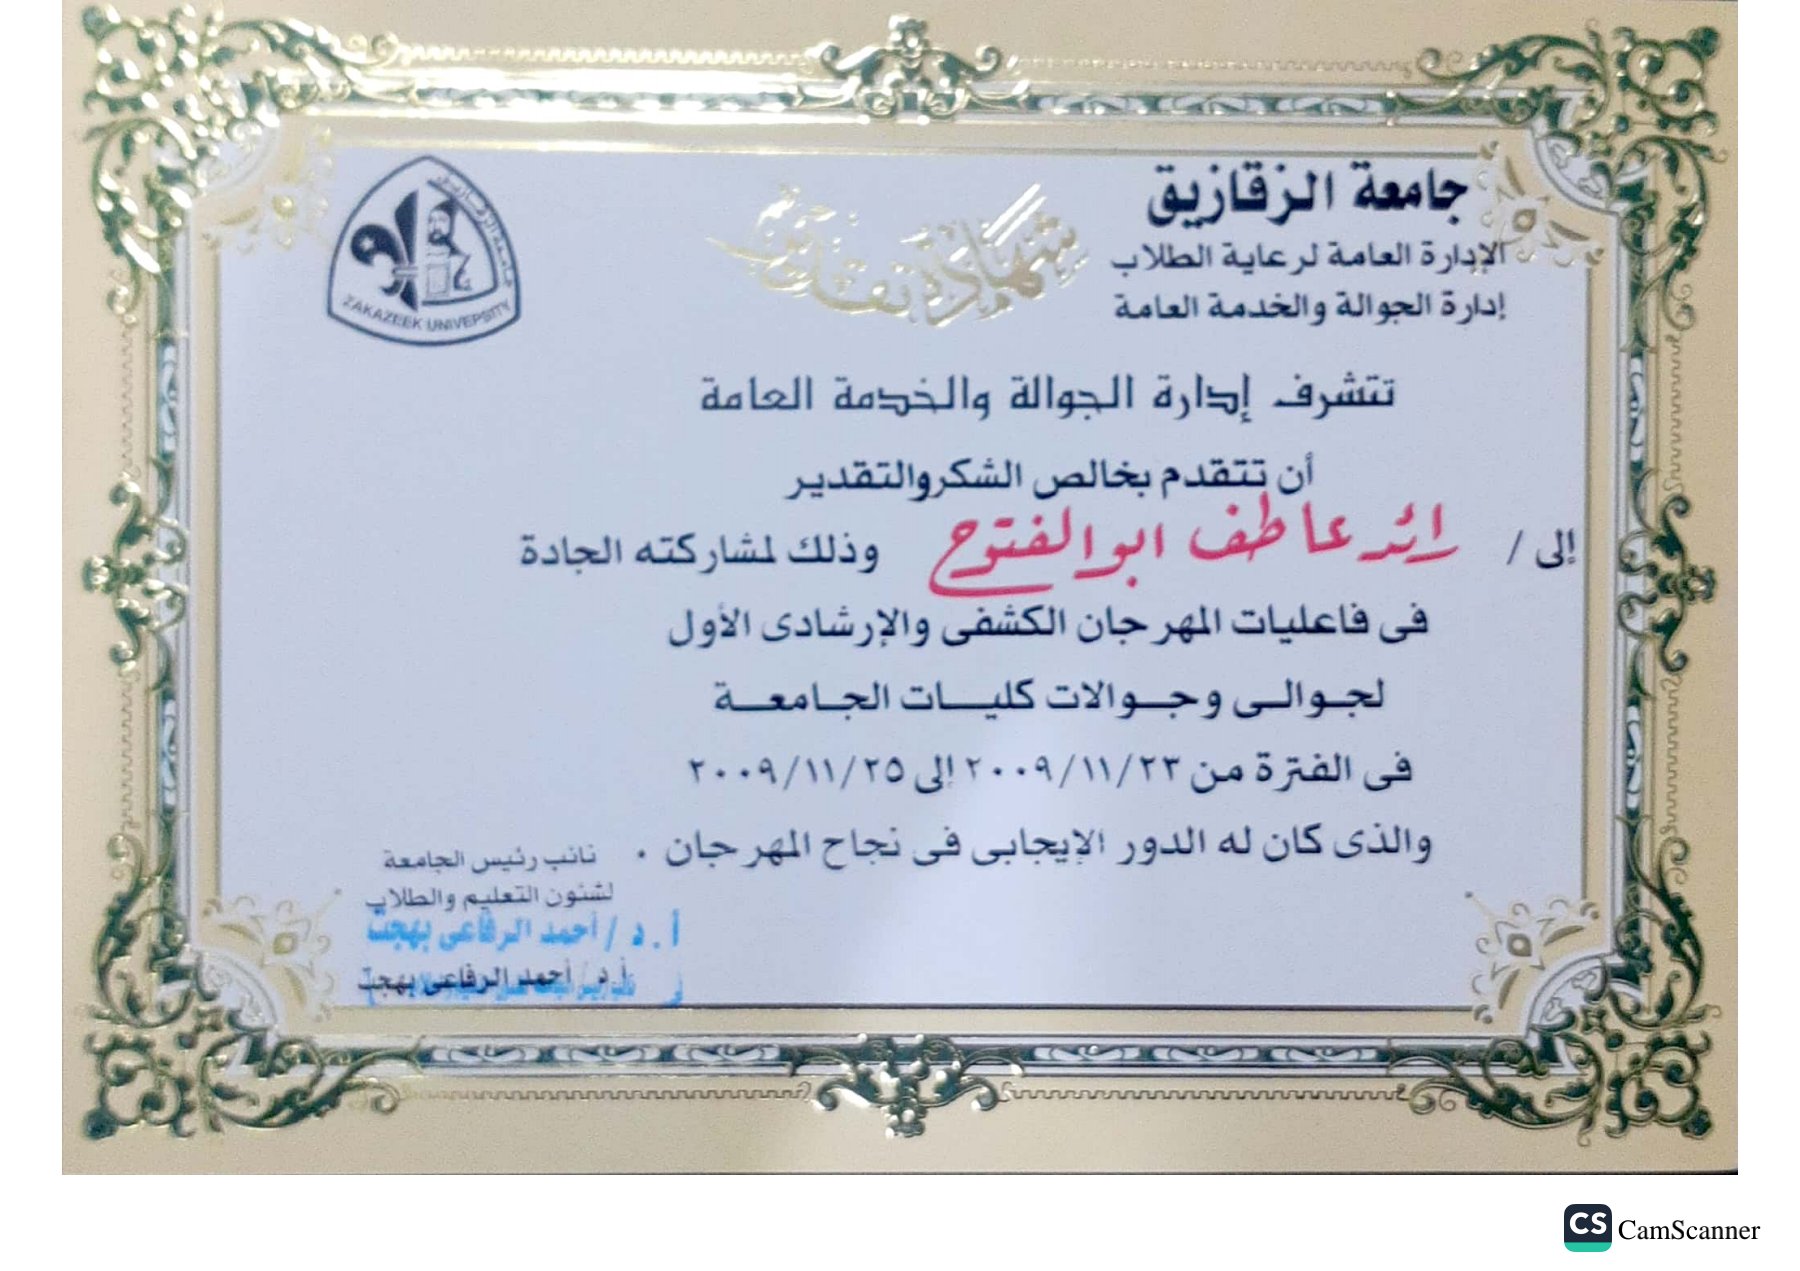 جامعة الزقازيق
الإدارة العامة لرعاية الطلاب
إدارة الجوالة والخدمة العامة
شهادة تقدير
جامعة الزقازيق
ZAKAZEEK UNIVERSITY
تتشرف إدارة الجوالة والخدمة العامة
أن تتقدم بخالص الشكر والتقدير
إلى / رائد عاطف ابو الفتوح وذلك لمشاركته الجادة
فى فاعليات المهرجان الكشفى والإرشادى الأول
لجوالى وجوالات كليات الجامعة
فى الفترة من ٢٠٠٩/١١/٢٣ إلى ٢٠٠٩/١١/٢٥
والذى كان له الدور الإيجابى فى نجاح المهرجان .
نائب رئيس الجامعة
لشئون التعليم والطلاب
أ . د / أحمد الرفاعى بهجت
أ.د. أحمد الرفاعى بهجت
CS CamScanner